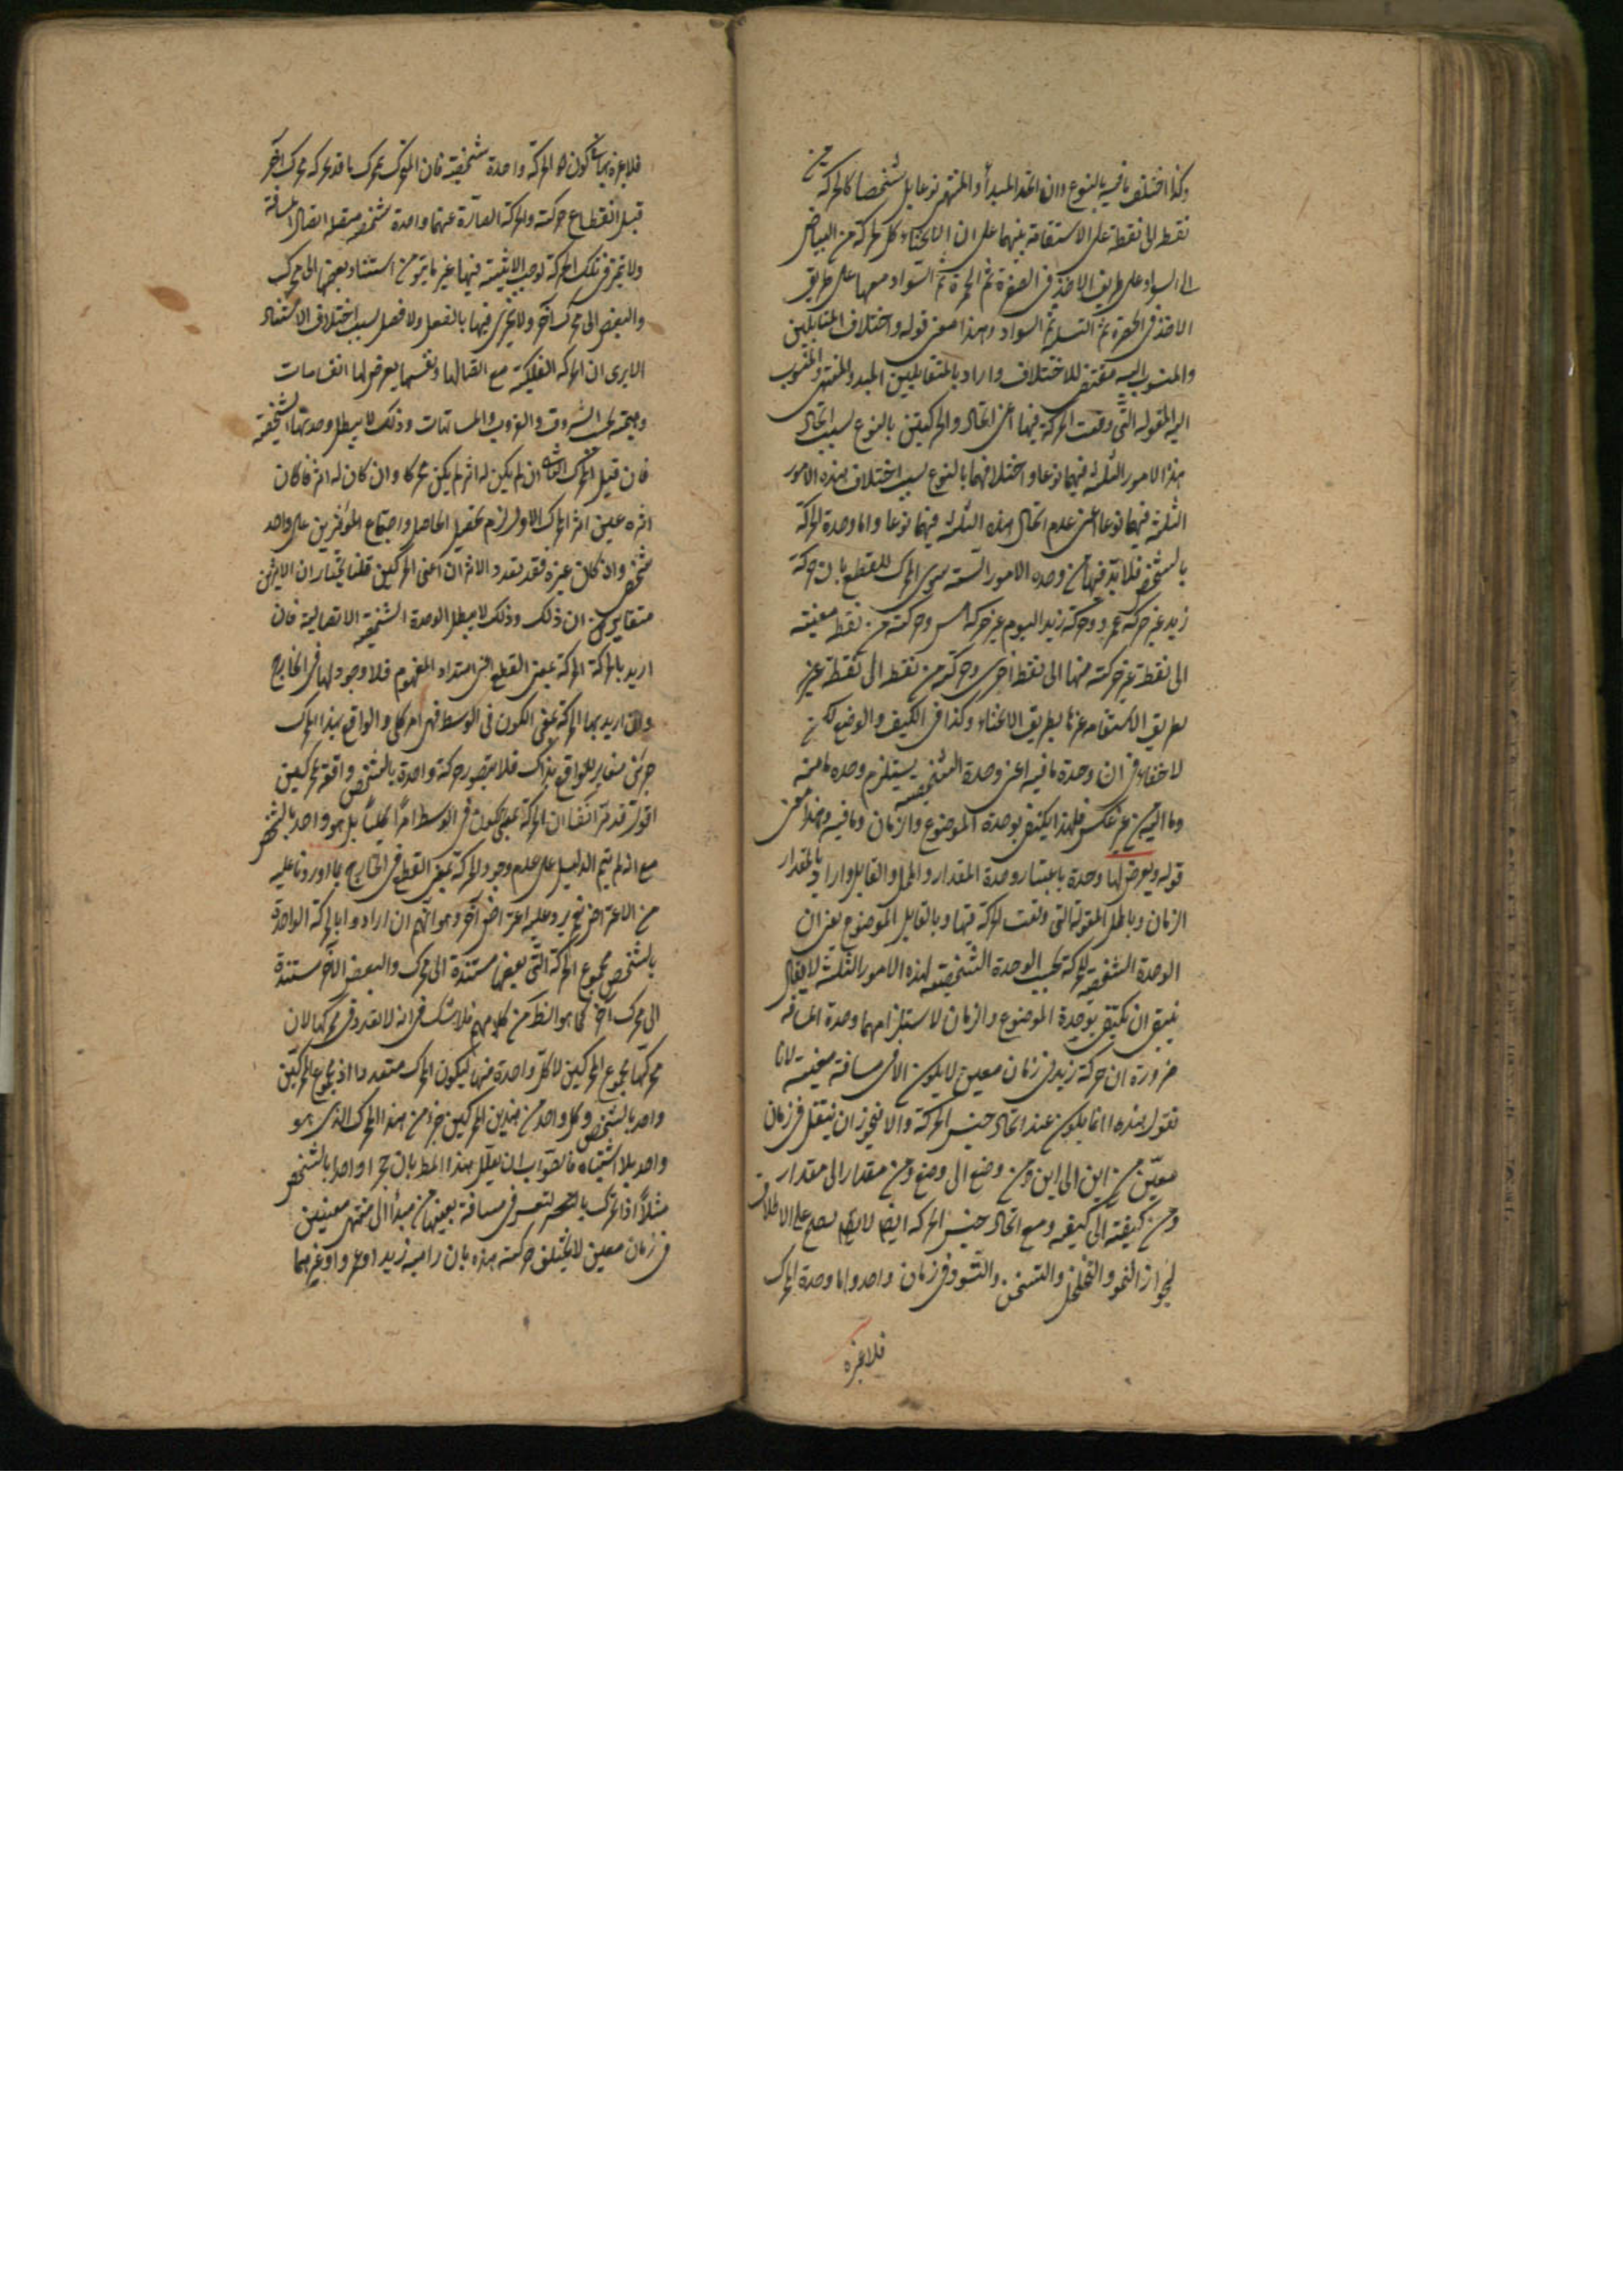 وكذا اختلف ما فيه بالنوع وان اتحد المبدأ والمنتهى نوعا بل شخصا كالحركة من
نقطة الى نقطة على الاستقامة بينهما على الانحناء كالحركة من البياض
الى السواد على طريق الاخذ فى الصفرة ثم الحمرة ثم السواد معها على طريق
الاخذ فى الخضرة ثم النيلية ثم السواد وهذا معنى قوله واختلاف المتقابلين
والمنسوب اليه مقتض للاختلاف واراد بالمتقابلين المبدء والمنتهى وبالمنسوب
اليه المقولة التى وقعت الحركة فيها اعنى اتحاد الحركتين بالنوع بسبب اتحاد
هذه الامور الثلثة فيهما نوعا واختلافهما بالنوع بسبب اختلاف هذه الامور
الثلثة فيهما نوعا اعنى عدم اتحاد هذه الثلثة فيهما نوعا واما وحدة الحركة
بالشخص فلا بد فيها من وحدة الامور الستة سوى المحرك للقطع بان حركة
زيد غير حركة عمرو وحركة زيد اليوم غير حركته امس وحركته من نقطة معينة
الى نقطة غير حركته منها الى نقطة اخرى وحركته من نقطة الى نقطة غير
بطريق الاستقامة غيرها بطريق الانحناء وكذا فى الكيف والوضع لكن
لا خفاء فى ان وحدة ما فيه اعنى وحدة الشخصية يستلزم وحدة ما منه
وما اليه من غير عكس فلهذا يكتفى بوحدة الموضوع والزمان وما فيه وهذا معنى
قوله ويعرض لها وحدة باعتبار وحدة المقدار والمحل والقابل واراد بالمقدار
الزمان وبالمحل المقولة التى وقعت الحركة فيها وبالقابل الموضوع يعنى ان
الوحدة الشخصية للحركة بحسب الوحدة الشخصية لهذه الامور الثلثة لا يقال
ينبغى ان يكتفى بوحدة الموضوع والزمان لاستلزامهما وحدة المسافة
ضرورة ان حركة زيد فى زمان معين لا يكون الا فى مسافة معينة لانا
نقول هذا انما يكون عند اتحاد جنس الحركة والا فيجوز ان ينتقل فى زمان
معين من اين الى اين ومن وضع الى وضع ومن مقدار الى مقدار
ومن كيفية الى كيفية ومع اتحاد جنس الحركة ايضا لا يصح على الاطلاق
لجواز النمو والتخلخل والتسخن والتسود فى زمان واحد واما وحدة المحرك
فلا عبرة
فلا عبرة بها فى كون الحركة واحدة شخصية فان المتحرك بمحرك ما قد يحركه محرك آخر
قبل انقطاع حركته والحركة الصادرة عنهما واحدة شخصية متصلة اتصال المسافة
ولا تميز فى تلك الحركة توجب الاثنينية فيها غير ما يتوهم من استناد بعضها الى محرك
والبعض الى محرك آخر ولا تجزى فيها بالفعل ولا فصل بسبب اختلاف الاستناد
الا يرى ان الحركة الفلكية مع اتصالها فى نفسها يعرض لها انقسامات
وهمية بحسب الشروق والغروب والمسامتات وذلك لا يبطل وحدتها الشخصية
فان قيل المحرك الثانى ان لم يكن له اثر لم يكن محركا وان كان له اثر فان كان
اثره عين اثر المحرك الاول لزم تحصيل الحاصل واجتماع المؤثرين على واحد
شخصى وان كان غيره فقد تعدد الاثران اعنى الحركتين قلنا نختار ان الاثرين
متغايران ذلك وذلك لا يبطل الوحدة الشخصية الاتصالية فان
اريد بالحركة الحركة بمعنى القطع اعنى امتداد المفهوم فلا وجود لها فى الخارج
وان اريد بها الحركة بمعنى الكون فى الوسط فهى امر كلى والواقع بهذا المحرك
جزئى مغاير للواقع بذاك فلا يتصور حركة واحدة بالشخص واقعة بمحركين
اقول قد مر آنفا ان الحركة بمعنى الكون فى الوسط ليس امرا كليا بل هو واحد بالشخص
مع انه لم يتم الدليل على عدم وجود الحركة بمعنى القطع فى الخارج بما اوردنا عليه
من الاعتراض نعم يرد عليه اعتراض آخر وهو انهم ان ارادوا بالحركة الواحدة
بالشخص مجموع الحركة التى بعضها مستندة الى محرك والبعض الآخر مستندة
الى محرك آخر كما هو الظ من كلامهم فلا شك فى انه لا تعدد فى محركها لان
محركها مجموع المحركين لا كل واحدة منهما ليكون المحرك متعددا اذ مجموع المحركين
واحد بالشخص وكل واحد من هذين المحركين جزء من هذا المحرك الذى هو
واحد بلا اشتباه فالصواب ان يعلل هذا المط بان حجرا واحدا بالشخص
مثلا اذا تحرك بالقسر فى مسافة بعينها من مبدأ الى منتهى معينين
فى زمان معين لا يختلف حركته هذه بان راميه زيد او عمرو او غيرهما